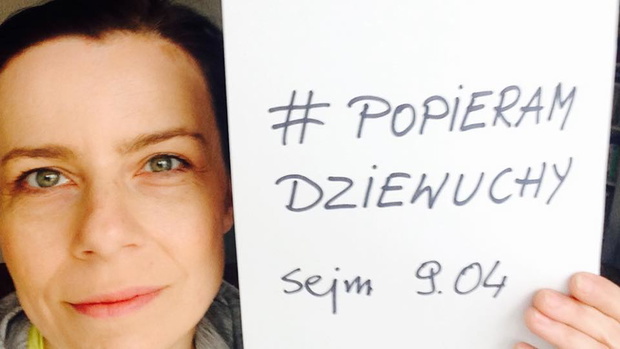 # POPiERAM
DZiEWUCHY
sejm 9.04